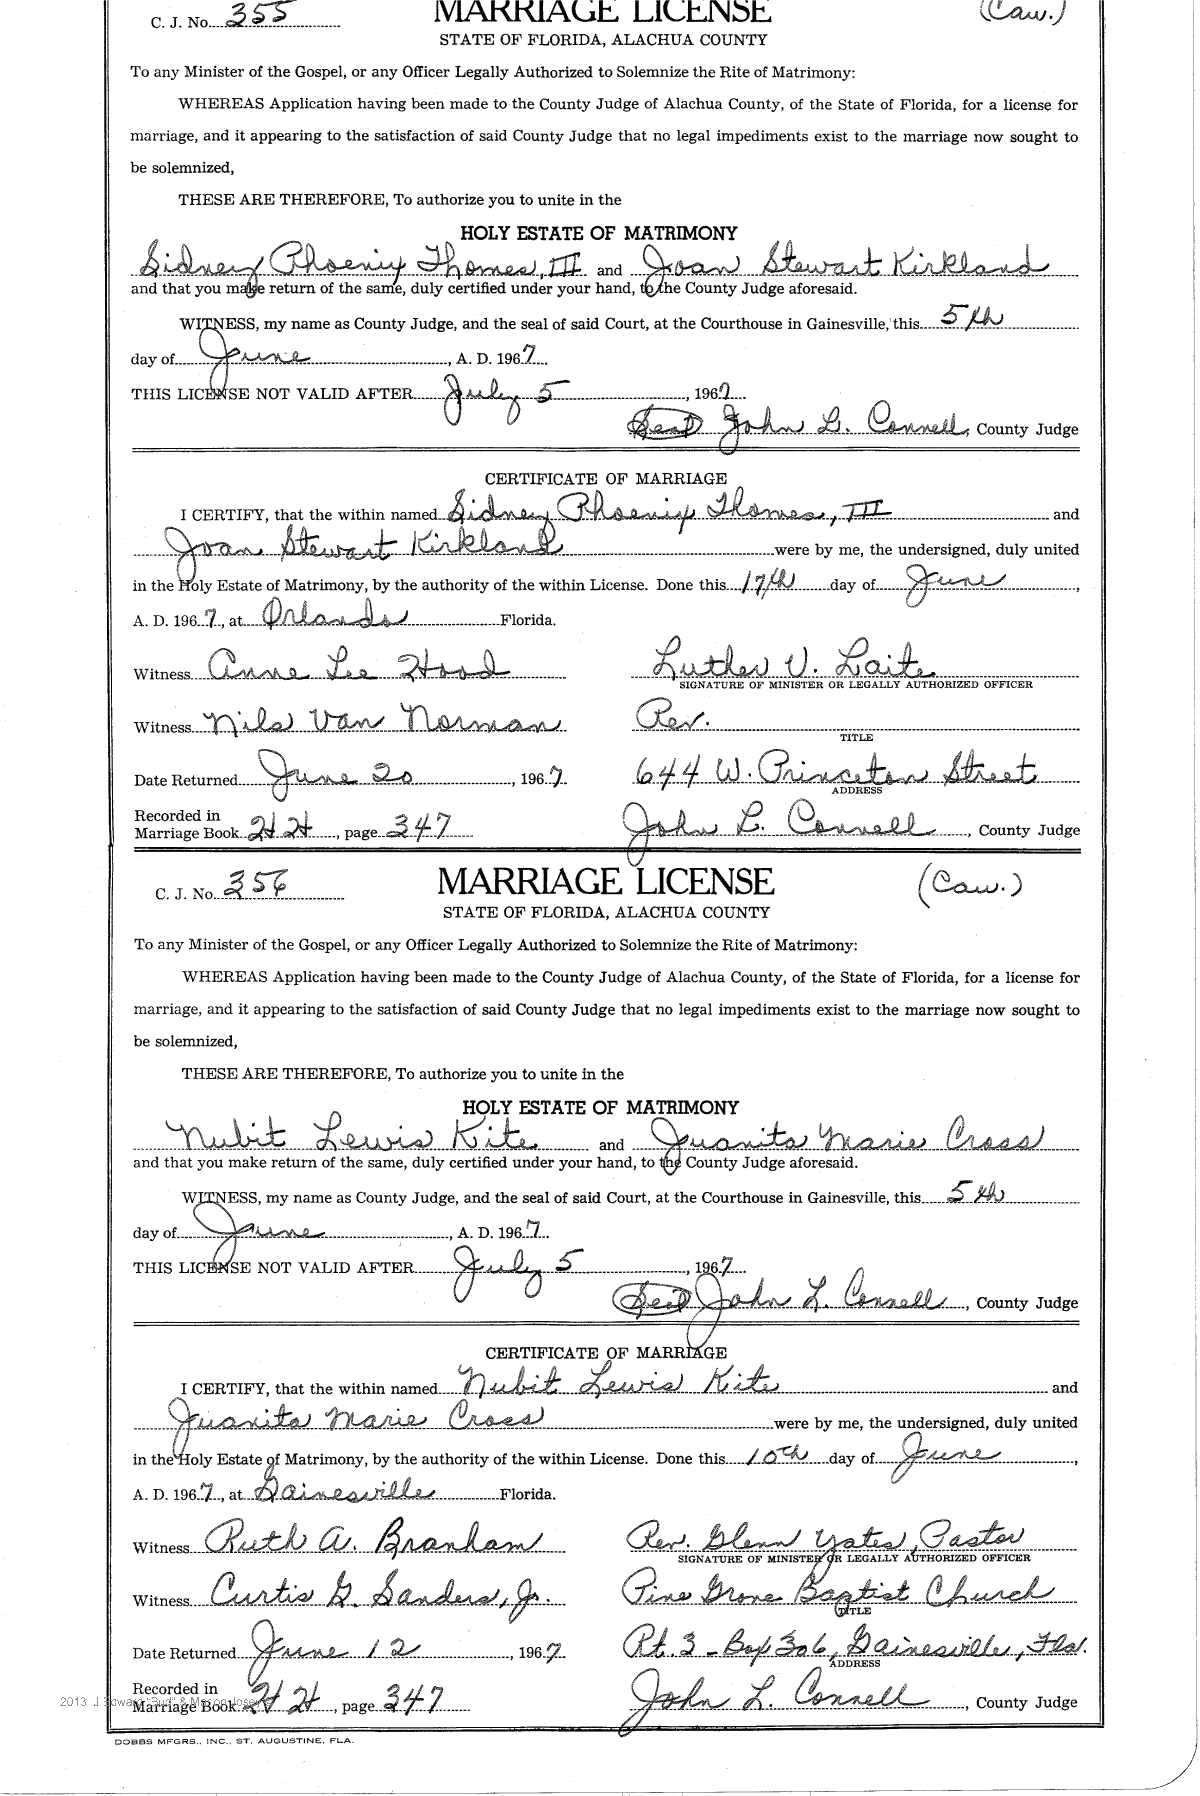 C. J. No. 355 MARRIAGE LICENSE (Caw.)
STATE OF FLORIDA, ALACHUA COUNTY
To any Minister of the Gospel, or any Officer Legally Authorized to Solemnize the Rite of Matrimony:
WHEREAS Application having been made to the County Judge of Alachua County, of the State of Florida, for a license for
marriage, and it appearing to the satisfaction of said County Judge that no legal impediments exist to the marriage now sought to
be solemnized,
THESE ARE THEREFORE, To authorize you to unite in the
HOLY ESTATE OF MATRIMONY
Sidney Phoenix Thomes, III and Joan Stewart Kirkland
and that you make return of the same, duly certified under your hand, to the County Judge aforesaid.
WITNESS, my name as County Judge, and the seal of said Court, at the Courthouse in Gainesville, this 5th
day of June, A. D. 1967
THIS LICENSE NOT VALID AFTER July 5, 1967
Seal John L. Connell, County Judge
CERTIFICATE OF MARRIAGE
I CERTIFY, that the within named Sidney Phoenix Thomes, III and
Joan Stewart Kirkland were by me, the undersigned, duly united
in the Holy Estate of Matrimony, by the authority of the within License. Done this 17th day of June,
A. D. 1967, at Orlando Florida.
Witness Anne Lee Hood Luther V. Laite
SIGNATURE OF MINISTER OR LEGALLY AUTHORIZED OFFICER
Witness Nils Van Norman Rev.
TITLE
Date Returned June 20, 1967 644 W. Princeton Street
ADDRESS
Recorded in
Marriage Book HH, page 347 John L. Connell, County Judge
C. J. No. 356 MARRIAGE LICENSE (Caw.)
STATE OF FLORIDA, ALACHUA COUNTY
To any Minister of the Gospel, or any Officer Legally Authorized to Solemnize the Rite of Matrimony:
WHEREAS Application having been made to the County Judge of Alachua County, of the State of Florida, for a license for
marriage, and it appearing to the satisfaction of said County Judge that no legal impediments exist to the marriage now sought to
be solemnized,
THESE ARE THEREFORE, To authorize you to unite in the
HOLY ESTATE OF MATRIMONY
Nubit Lewis Kite and Juanita Marie Cross
and that you make return of the same, duly certified under your hand, to the County Judge aforesaid.
WITNESS, my name as County Judge, and the seal of said Court, at the Courthouse in Gainesville, this 5th
day of June, A. D. 1967
THIS LICENSE NOT VALID AFTER July 5, 1967
Seal John L. Connell, County Judge
CERTIFICATE OF MARRIAGE
I CERTIFY, that the within named Nubit Lewis Kite and
Juanita Marie Cross were by me, the undersigned, duly united
in the Holy Estate of Matrimony, by the authority of the within License. Done this 10th day of June,
A. D. 1967, at Gainesville Florida.
Witness Ruth A. Branham Rev. Glenn Yates, Pastor
SIGNATURE OF MINISTER OR LEGALLY AUTHORIZED OFFICER
Witness Curtis G. Sanders, Jr. Pine Grove Baptist Church
TITLE
Date Returned June 12, 1967 Rt. 3 - Box 306, Gainesville, Fla.
ADDRESS
Recorded in
Marriage Book HH, page 347 John L. Connell, County Judge
2013 J Edward "Bud" &
DOBBS MFGRS., INC., ST. AUGUSTINE, FLA.